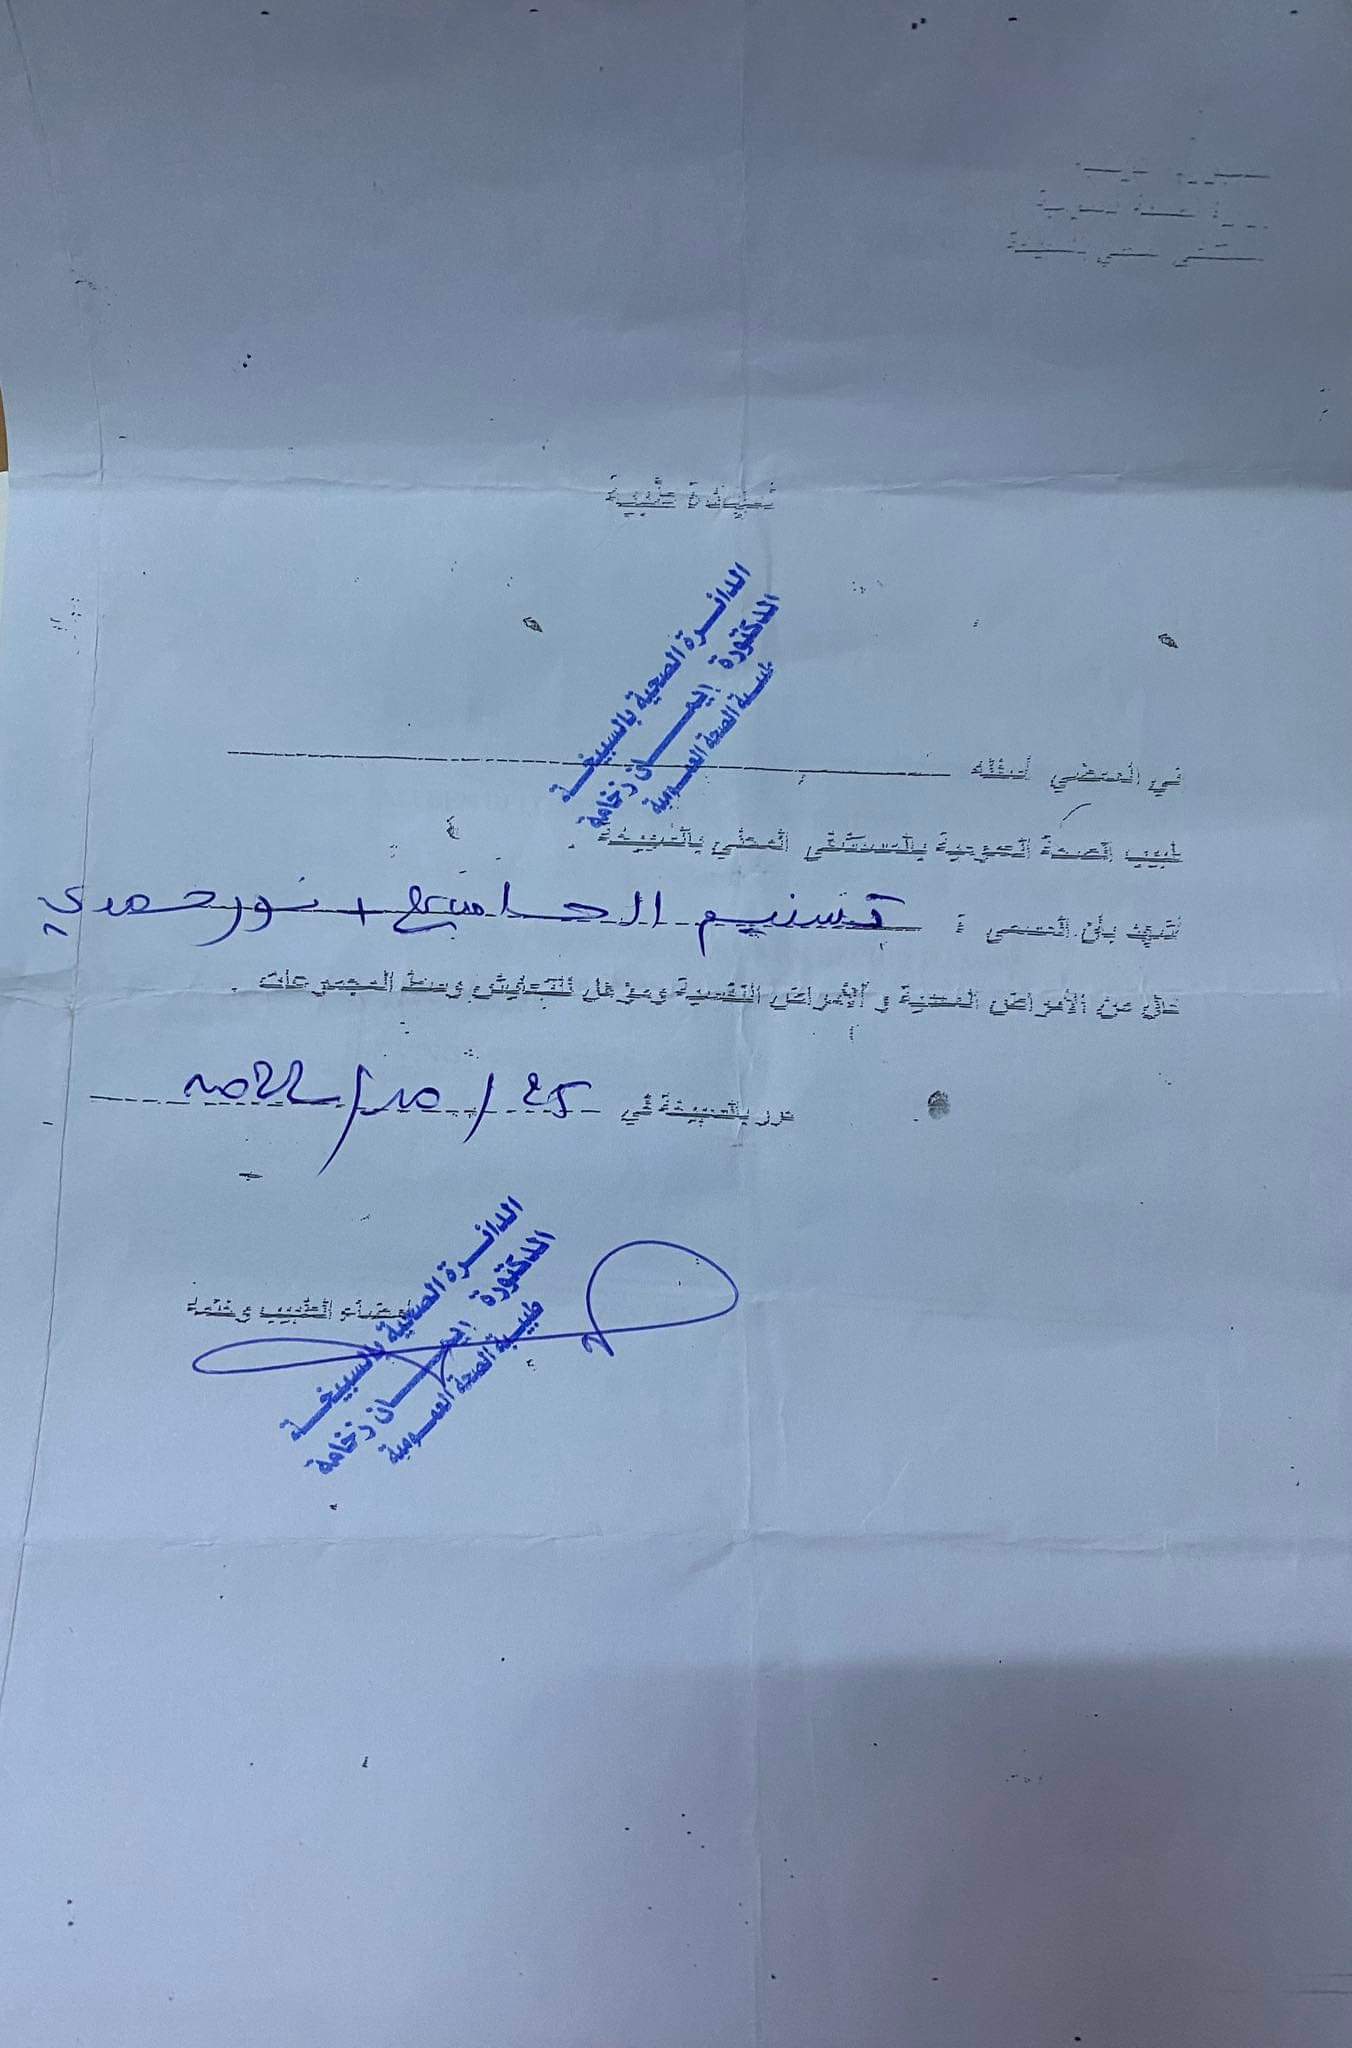 شهادة طبية
الدائرة الصحية بالسبيخة
الدكتورة إيمان زخامة
طبيبة الصحة العمومية
إني الممضي أسفله
طبيب الصحة العمومية بالمستشفى المحلي بالسبيخة
أشهد بأن المسمى : تسنيم الحامدي + نور حمدي
خال من الأمراض المعدية و الأمراض النفسية ومؤهل للتعايش وسط المجموعات .
حرر بالسبيخة في 25 / 10 / 2022
إمضاء الطبيب وختمه
الدائرة الصحية بالسبيخة
الدكتورة إيمان زخامة
طبيبة الصحة العمومية